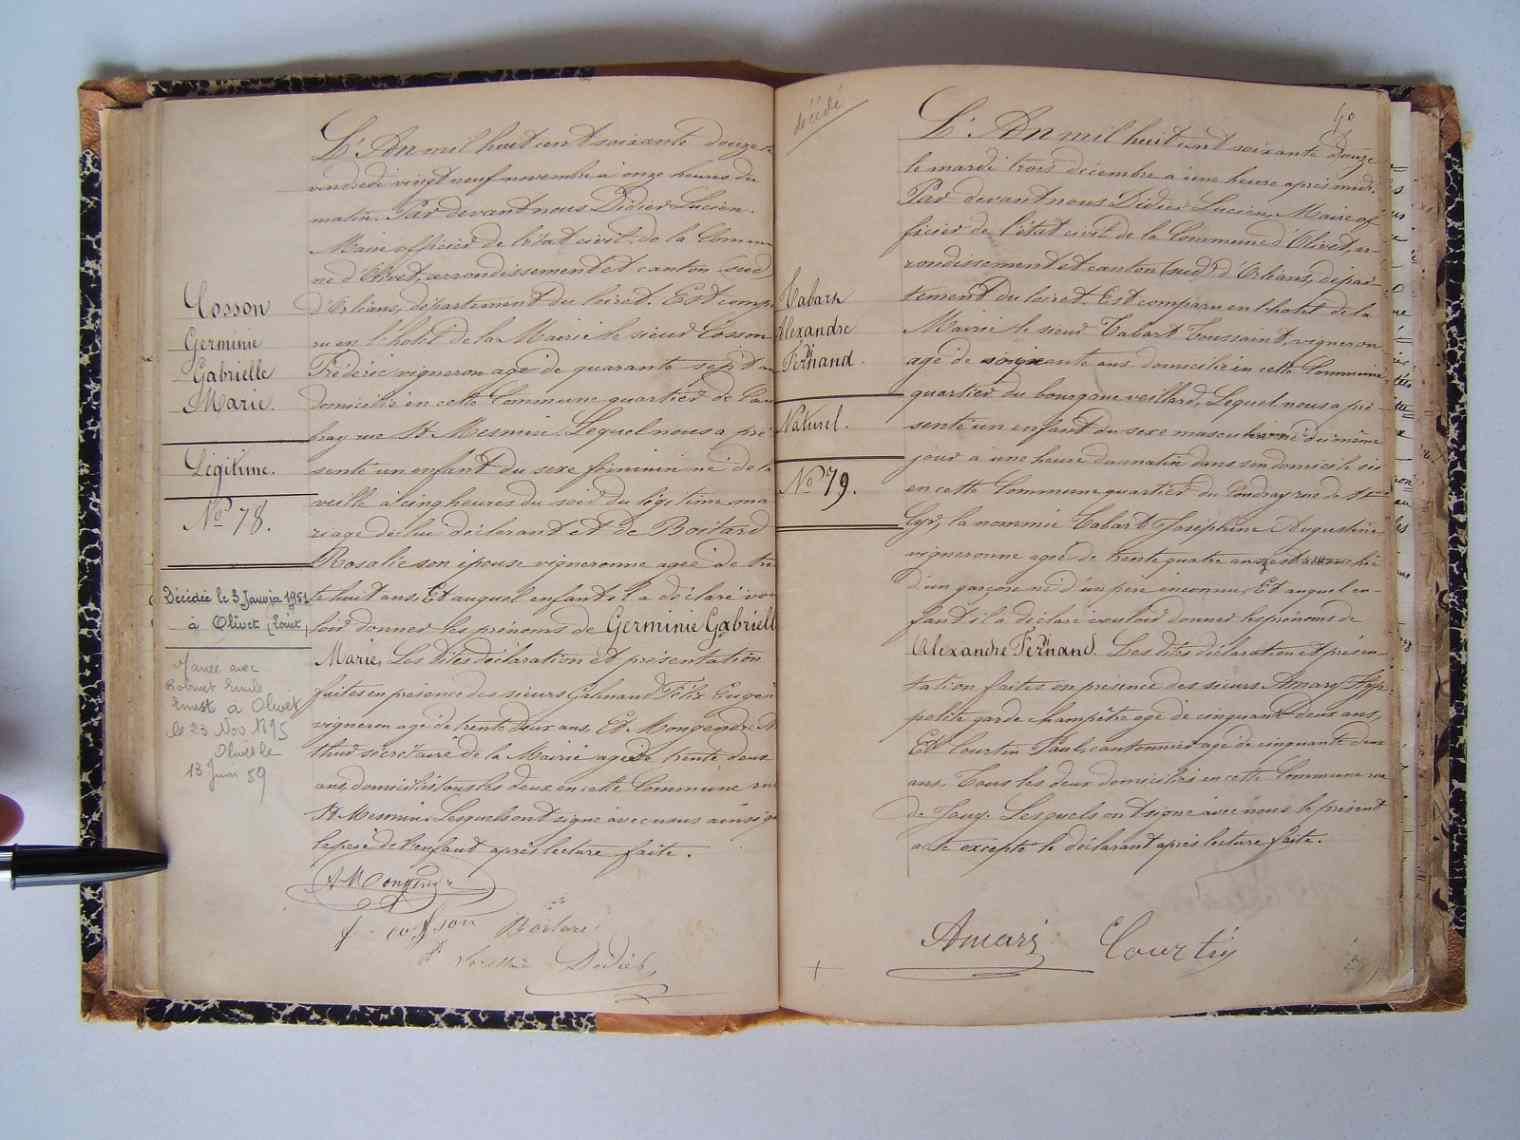 L'An mil huit cent soixante douze le
vendredi vingt neuf novembre à onze heures du
matin. Par devant nous Didier Lucien.
Maire officier de l'état civil de la Commu
ne d'Olivet, arrondissement et canton (sud)
d'Orléans, département du Loiret. Est compa
ru en l'hôtel de la Mairie le sieur Cosson
Fréderic vigneron agé de quarante sept ans
domicilié en cette Commune quartier de
rue St Mesmin. Lequel nous a pré
senté un enfant du sexe féminin né de la
veille à cinq heures du soir du légitime ma
riage de lui déclarant et de Boitard
Rosalie son épouse vigneronne agée de tren
te huit ans. Et auquel enfant il a déclaré vou
loir donner les prénoms de Germinie Gabrielle
Marie. Les dites déclaration et présentation
faites en présence des sieurs Félix Eugène
vigneron agé de trente deux ans. Et
thur secrétaire de la Mairie agé de trente deux
ans, domiciliés tous les deux en cette Commune rue
St Mesmin. Lesquels ont signé avec nous ainsi que
le père de l'enfant après lecture faite.
Cosson
Germinie
Gabrielle
Marie.
Légitime.
No 78.
Décédée le 3 Janvier 1951
à Olivet (Loiret)
Mariée avec
Robinet Emile
Ernest à Olivet
le 23 Nov 1895
Olivet le
13 Juin 59
f. cosson Boitard
Didier
décédé
L'An mil huit cent soixante douze
le mardi trois décembre à une heure après midi.
Par devant nous Didier Lucien, Maire of
ficier de l'état civil de la Commune d'Olivet, ar
rondissement et canton (sud) d'Orléans, dépar
tement du Loiret. Est comparu en l'hôtel de la
Mairie le sieur Tabart Toussaint, vigneron
agé de soixante ans domicilié en cette Commune
quartier du bourg rue veillard, Lequel nous a pré
senté un enfant du sexe masculin né du même
jour à une heure du matin dans son domicile sis
en cette Commune quartier du Coudray rue de St
Cyr, la nommée Tabart Joséphine Augustine
vigneronne agée de trente quatre ans est accouchée
d'un garçon né d'un père inconnu. Et auquel en
fant il a déclaré vouloir donner les prénoms de
Alexandre Fernand. Les dites déclaration et présen
tation faites en présence des sieurs Amary Hyp
polite garde champêtre agé de cinquante deux ans,
Et Courtin Paul, cantonnier agé de cinquante deux
ans. Tous les deux domiciliés en cette Commune rue
de Jouy. Lesquels ont signé avec nous le présent
acte excepté le déclarant après lecture faite.
Tabart
Alexandre
Fernand.
Naturel.
No 79.
Amary Courtin